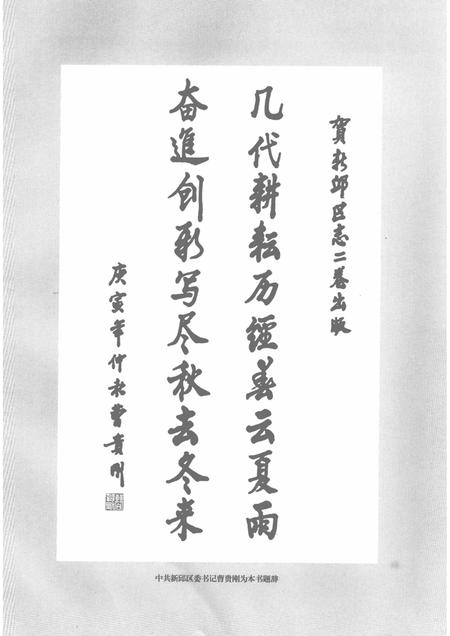 賀新邱区志二卷出版
几代耕耘历經春云夏雨
奋進创新写尽秋去冬来
庚寅年仲秋曹贵刚
中共新邱区委书记曹贵刚为本书题辞